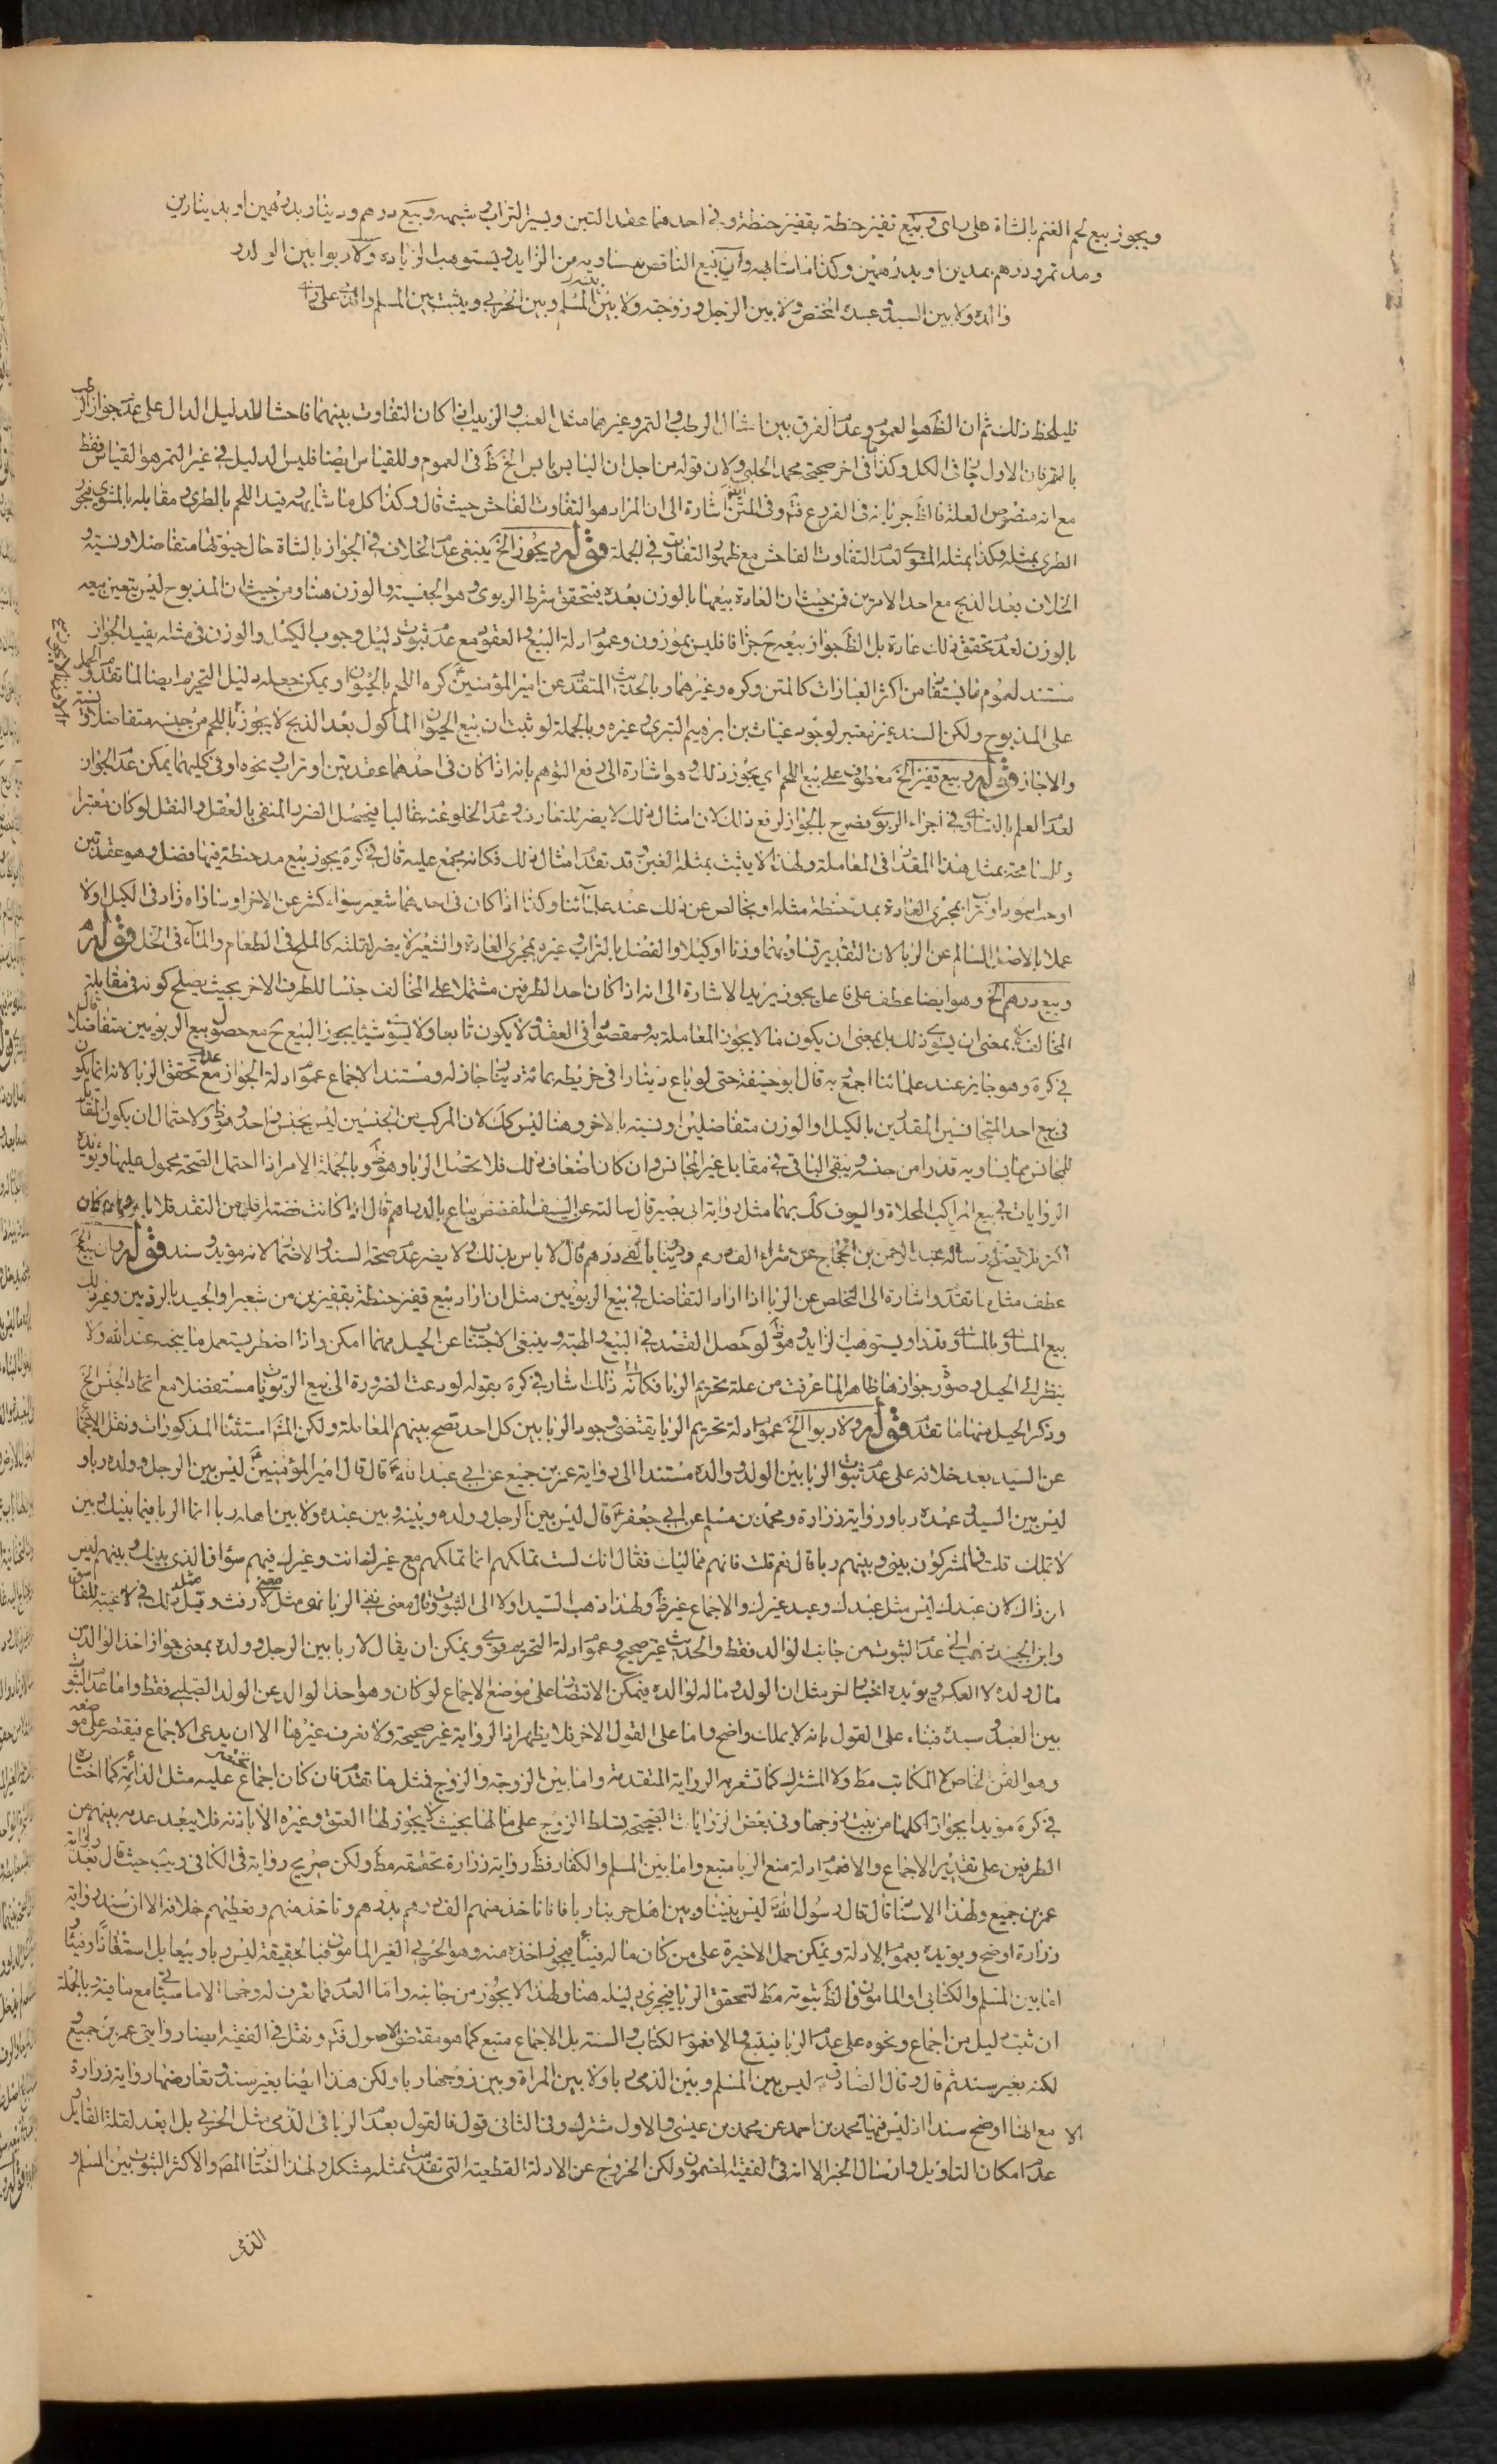 ويجوز بيع لحم الغنم بالشاة على راى وبيع قفيز حنطة بقفيز حنطة وفى احدهما عقد التبن ويسير التراب وشبهه وبيع درهم ودينار بدرهمين او بدينارين
ومد تمر ودرهم بمدين او بدرهمين وكذا ما شابهه وان يبيع الناقص بمساويه من الزايد ويستوهب الزيادة ولا ربوا بين الولد و
والده ولا بين السيد وعبده المختص ولا بين الرجل وزوجته ولا بين المسلم وبين الحربي ويثبت بين المسلم والذمى على راى
فليلحظ ذلك ثم ان الظ هو العموم وعدم الفرق بين امثال الرطب والتمر وغيرهما مثل العنب والزبيب اذا كان التفاوت بينهما فاحشا للدليل الدال على عدم جواز الرطب
بالتمر فان الاول جا فى الكل وكذا فى اخر صحيحة محمد الحلبي ولان قوله من اجل ان اليابس يابس الخ ظ فى العموم وللقياس ايضا فليس الدليل فى غير التمر هو القياس فقط
مع انه منصوص العلة فالظ جريانه فى الفروع فتم وفى المتن اشارة الى ان المراد هو التفاوت الفاحش حيث قال وكذا كل ما شابهه قيد اللحم بالطرى ومقابله بالمشوى فيجوز
الطرى بمثله وكذا بمثله المشوى لعدم التفاوت الفاحش مع ظهور التفاوت فى الجملة قوله ويجوز الخ ينبغى عدم الخلاف فى الجواز بالشاة حال حيوتها متفاضلا ونسية و
الخلاف بعد الذبح مع احد الامرين فمن حيث ان العادة بيعها بالوزن بعده يتحقق شرط الربوى وهو الجنسية والوزن هنا ومن حيث ان المذبوح ليس يتعين بيعه
بالوزن لعدم تحقق ذلك عادة بل الظ جواز بيعه ح جزافا فليس بموزون وعموم ادلة البيع والعقود مع عدم ثبوت دليل وجوب الكيل والوزن فى مثله يفيد الجواز
مستند لعموم ما يستفا من اكثر العبارات كالمتن وكره وغيرهما وبالحديث المتقدم عن امير المؤمنين ع كره اللحم بالحيوان ويمكن جعله دليل التحريم ايضا لما تقدم والحمل
على المذبوح ولكن السند غير معتبر لوجود غياث بن ابرهيم التبرى وغيره وبالجملة لو ثبت ان بيع الحيوان الماكول بعد الذبح لا يجوز باللحم من جنسه متفاضلا ونسية
والا جاز قوله وبيع قفيز الخ معطوف على بيع اللحم اى يجوز ذلك وهو اشارة الى دفع التوهم بانه اذا كان فى احدهما عقد تبن او تراب ونحوه او فى كليهما يمكن عدم الجواز
لعدم العلم بالتساوى فى اجزاء الربوى فصرح بالجواز لرفع ذلك لان امثال ذلك لا يضر للتعارف وعدم الخلو عنه غالبا فيحصل الضرر المنفى بالعقل والنقل لو كان معتبرا
وللمسامحة بمثل هذا المقدار فى المعاملة ولهذا لا يثبت بمثله الغبن وقد تقدم امثال ذلك فكانه مجمع عليه قال فى كره يجوز بيع مد حنطة فيها فضل وهو عقد تبن
او حب اسود او تراب بمجرى العادة بمد حنطة مثله او بخالص عن ذلك عند علمائنا وكذا اذا كان فى احدهما شعير سواء كثر عن الاخر او ساواه زاد فى الكيل اولا
عملا بالاصل السالم عن الربا لان التقدير تساويهما وزنا او كيلا والفضل بالتراب وغيره بمجرى العادة والشعير لا يضر لقلته كالملح فى الطعام والماء فى الخل قوله
وبيع درهم الخ وهو ايضا عطف على فاعل يجوز يريد الاشارة الى انه اذا كان احد الطرفين مشتملا على المخالف جنسا للطرف الاخر بحيث يصلح كونه فى مقابلة
المخالف بمعنى ان يسوى ذلك بل بمعنى ان يكون مالا يجوز المعاملة به ومقصودا فى العقد ولا يكون تابعا ولا يسوى شيئا يجوز البيع ح مع حصول بيع الربويين متفاضلا قال
فى كره وهو جايز عند علمائنا اجمع به قال ابو حنيفة حتى لو باع دينارا فى خريطة بمائة دينار جاز له ومستند الاجماع عموم ادلة الجواز مع عدم تحقق الربا لانه انما يكون
فى بيع احد المتجانسين المقدرين بالكيل او الوزن متفاضلين او نسية بالاخر وهنا ليس كك لان المركب من الجنسين ليس بجنس واحد وهو ظ ولاحتمال ان يكون المقابل
للمجانس بما يساويه قدرا من جنسه ويبقى الباقى فى مقابل غير المجانس وان كان اضعاف ذلك فلا يحصل الربا وهو ظ وبالجملة الامر اذا احتمل الصحة محمول عليها ويؤيده
الروايات فى بيع المراكب المحلاة والسيوف كك بهما مثل رواية ابى بصير قال سالته عن السيف المفضض يباع بالدراهم قال اذا كانت فضته اقل من النقد فلا باس وان كان
اكثر فلا يصلح وسأله عبد الرحمن بن الحجاج عن شراء الف درهم ودينار بالفى درهم قال لا باس بذلك ولا يضر عدم صحة السند والاضمار لانه مؤيد وسند قوله وان يبيع الخ
عطف مثل ما تقدم واشارة الى التخلص عن الربا اذا اراد التفاضل فى بيع الربويين مثل ان اراد بيع قفيز حنطة بقفيزين من شعير او الجيد بالرديين وغير ذلك
بيع المساوى بالمساوى قدرا ويستوهب الزايد وهو ظ لو حصل القصد فى البيع والهبة وينبغى الاجتناب عن الحيل مهما امكن واذا اضطر يستعمل ما ينجيه عند الله ولا
ينظر الى الحيل وصور جوازها ظاهرا لما عرفت من علة تحريم الربا فكانه الى ذلك اشار فى كره بقوله لو دعت الضرورة الى بيع الربويات مستفضلا مع اتحاد الجنس الخ
وذكر الحيل منها ما تقدم قوله ولا ربوا الخ عموم ادلة تحريم الربا يقتضى وجود الربا بين كل احد تصح بينهم المعاملة ولكن المشهور استثناء المذكورات ونقل الاجماع
عن السيد بعد خلافه على عدم ثبوت الربا بين الولد والده مستندا الى رواية عمرو بن جميع عن ابي عبد الله ع قال قال امير المؤمنين ع ليس بين الرجل وولده ربا و
ليس بين السيد وعبده ربا ورواية زرارة ومحمد بن مسلم عن ابي جعفر ع قال ليس بين الرجل وولده وبينه وبين عبده ولا بين اهله ربا انما الربا فيما بينك وبين
لا تملك قلت فالمشركون بينى وبينهم ربا قال نعم قلت فانهم مماليك فقال انك لست تملكهم انما تملكهم مع غيرك انت وغيرك فيهم سواء فالذى بينك وبينهم ليس
من ذلك لان عبدك ليس مثل عبدك وعبد غيرك والاجماع غير ظ ولهذا ذهب السيد اولا الى الثبوت وقال معنى نفى الربا نهى مثل لا رفث وقيل مثله ذلك فى لا غيبة للفاسق
وابن الجنيد ذهب الى عدم الثبوت من جانب الوالد فقط والحديث غير صحيح وعموم ادلة التحريم قوى ويمكن ان يقال لا ربا بين الرجل وولده بمعنى جواز اخذ الوالد من
مال ولده لا العكس ويؤيده اخبار اخر مثل ان الولد وماله لوالده فيمكن الاقتصار على موضع الاجماع لو كان وهو اخذ الوالد عن الولد الصلبى فقط واما عدم الثبوت
بين العبد وسيده فبناء على القول بانه لا يملك واضح واما على القول الاخر فلا يظهر اذ الرواية غير صحيحة ولا نعرف غيرها الا ان يدعى الاجماع فيقتصر على موضعه
وهو القن الخاص لا المكاتب مط ولا المشترك كما تشعر به الرواية المتقدمة واما بين الزوجة والزوج فمثل ما تقدم فان كان اجماع عليه مثل الدائمة كما اختار
فى كره مؤيدا بجواز اكلها من بيت زوجها وفى بعض الروايات الصحيحة تسلط الزوج على مالها بحيث لا يجوز لها العتق وغيره الا باذنه فلا يبعد عدمه بينهم من
الطرفين على تقدير الاجماع والا فعموم ادلة منع الربا متبع واما بين المسلم والكفار فظ رواية زرارة تحققه مط ولكن صريح رواية فى الكافى وبيب حيث قال بعد رواية
عمرو بن جميع ولهذا الاسناد قال قال رسول الله ص ليس بيننا وبين اهل حربنا ربا فانا ناخذ منهم الف درهم بدرهم وناخذ منهم ونعطيهم خلافه الا ان سند رواية
زرارة اوضح ويؤيده بعموم الادلة ويمكن حمل الاخيرة على من كان ماله فيئا فيجوز اخذه منه وهو الحربي الغير المامون فبالحقيقة ليس ربا وبيعا بل استنقاذا وفيئا و
اما بين المسلم والكتابى او المامون فالظ ثبوته مط لتحقق الربا فيجرى دليله هنا ولهذا لا يجوز من جانبه واما العدم فما نعرف له وجها الا ما سيجئ مع ما فيه وبالجملة
ان ثبت دليل من اجماع ونحوه على عدم الربا فيتبع والا فعموم الكتاب والسنة بل الاجماع متبع كما هو مقتضى الاصول فتم ونقل فى الفقيه ايضا روايتى عمرو بن جميع و
لكنه بغير سند ثم قال وقال الصادق ع ليس بين المسلم وبين الذمى ربا ولا بين المراة وبين زوجها ربا ولكن هذا ايضا بغير سند وتعارضها رواية زرارة
الا مع انها اوضح سندا اذ ليس فيها محمد بن احمد عن محمد بن عيسى والاول مشترك وفى الثانى قول فالقول بعدم الربا فى الذمى مثل الحربى بل ابعد لقلة القايل و
عدم امكان التاويل وارسال الخبر الا انه فى الفقيه المضمون ولكن الخروج عن الادلة القطعية التى تقدمت بمثله مشكل ولهذا اختار المص والاكثر الثبوت بين المسلم و
الذمى